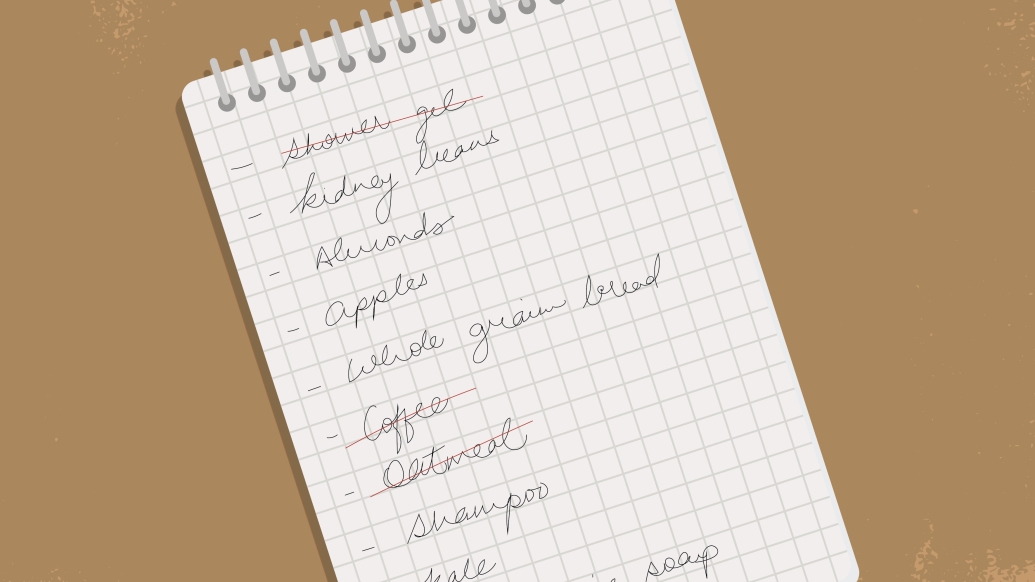 - shower gel
- kidney beans
- Almonds
- Apples
- Whole grain bread
- Coffee
- Oatmeal
- shampoo
kale
soap